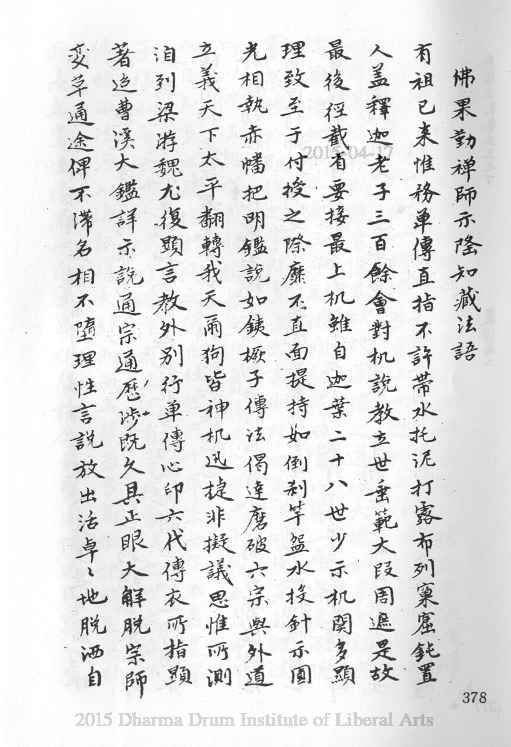 佛果勤禅師示隆知藏法語
有祖已来惟務单傳直指不許帶水拕泥打露布列窠窟鈍置
人盖釋迦老子三百餘會對机說教立世垂範大段周遮是故
最後徑截省要接最上机雖自迦葉二十八世少示机関多顯
理致至于付授之際靡不直面提持如倒刹竿盌水投針示圓
光相執赤幡把明鑑說如鉄橛子傳法偈達磨破六宗與外道
立義天下太平翻轉我天爾狗皆神机迅捷非擬議思惟所測
洎到梁游魏尤復顯言教外别行单傳心印六代傳衣所指顯
著迨曹溪大鑑詳示說通宗通歷涉既久具正眼大解脱宗師
变革通途俾不滞名相不墮理性言說放出活卓〻地脱洒自
378
2015-04-17
2015 Dharma Drum Institute of Liberal Arts